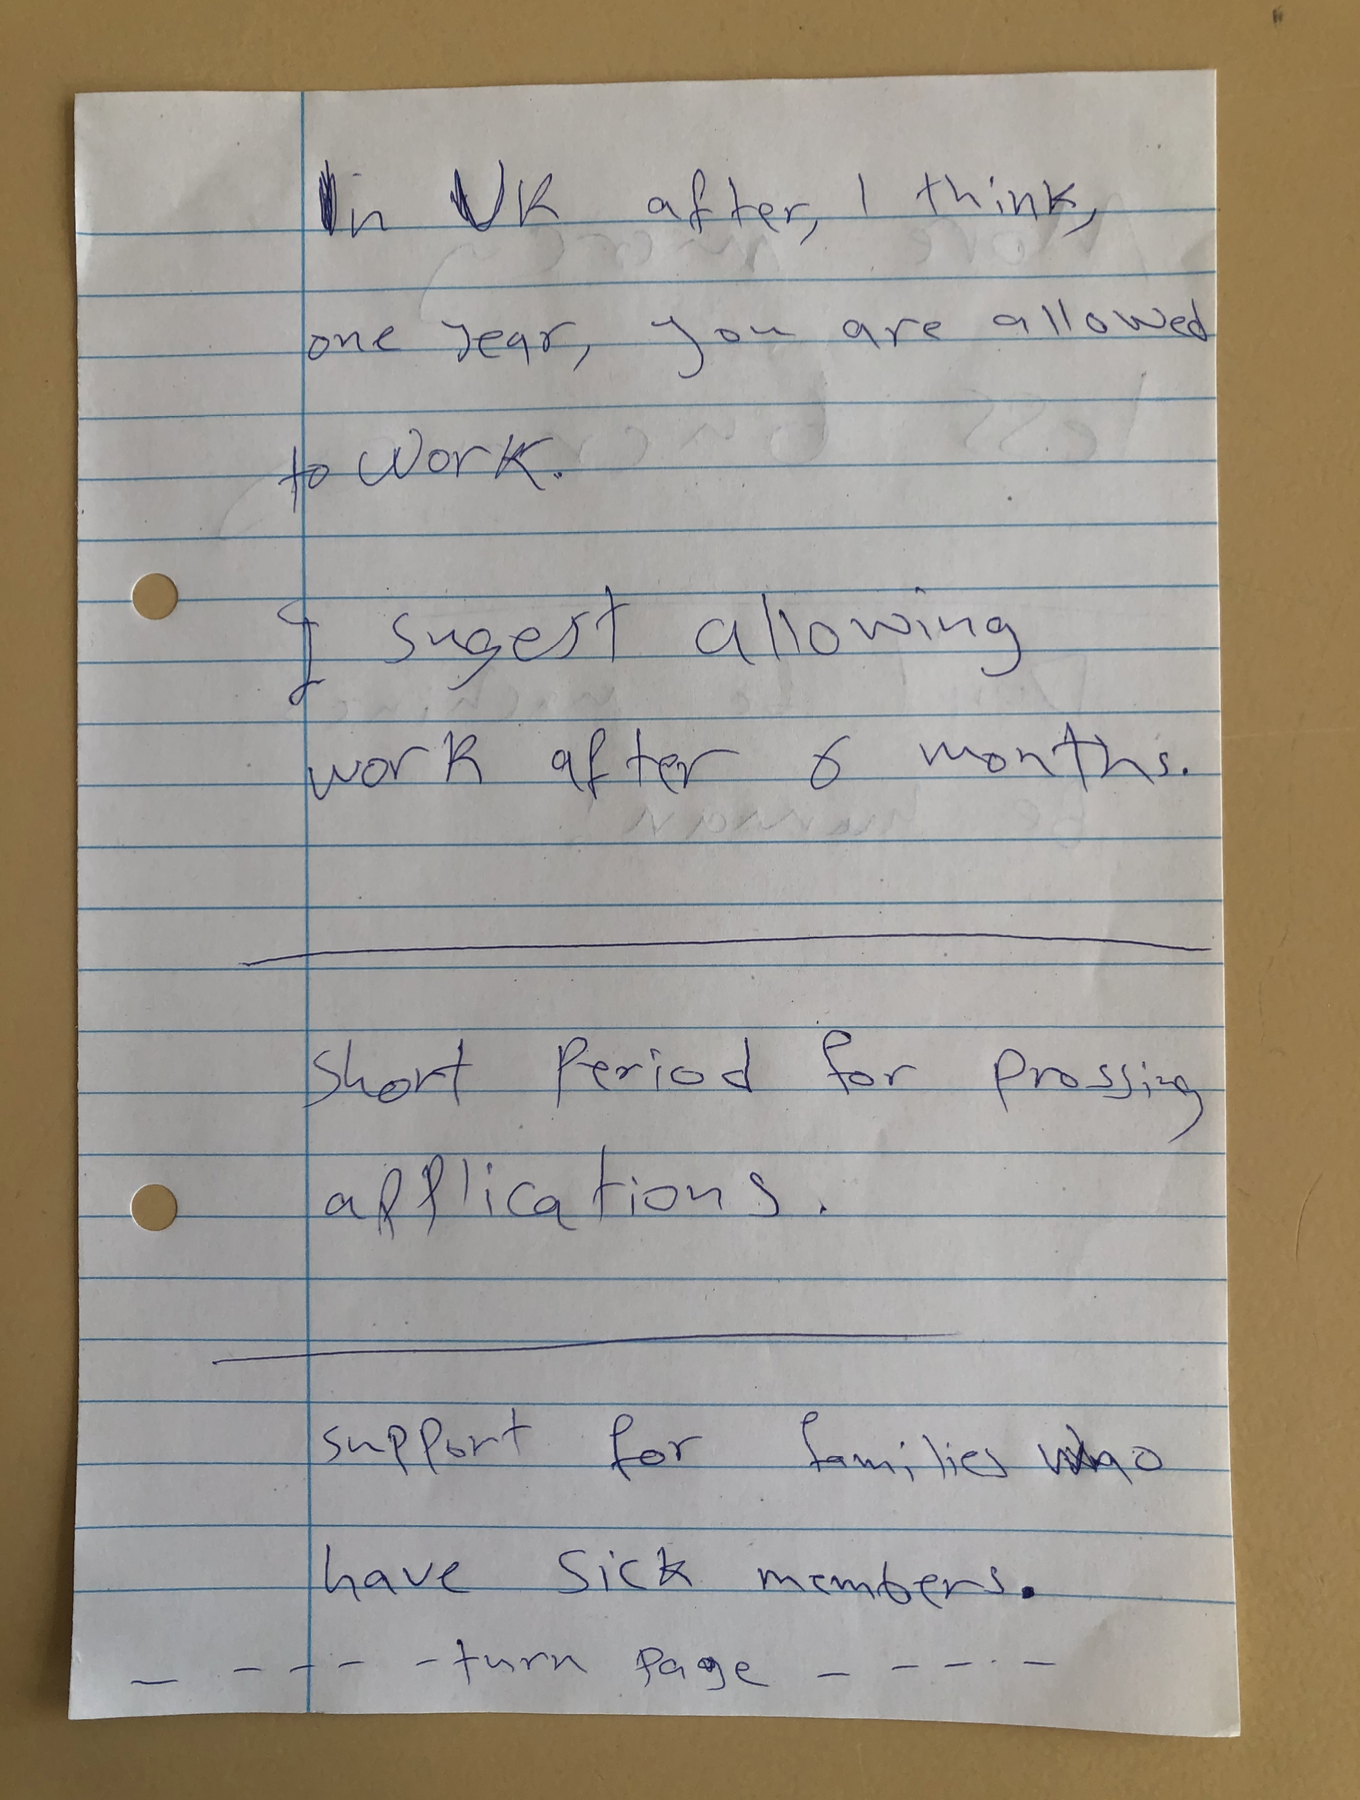 In UK after, I think,
one year, you are allowed
to work.
I sugest allowing
work after 6 months.
Short Period for prossing
applications.
support for families who
have sick members.
- - - - - turn page - - - - -